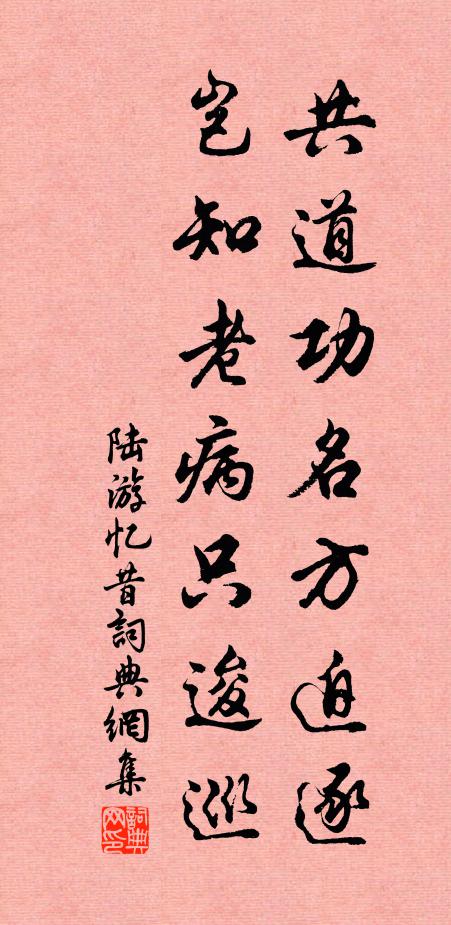 共道功名方迫逐
岂知老病只逡巡
陆游忆昔詞典網集
詞典网印